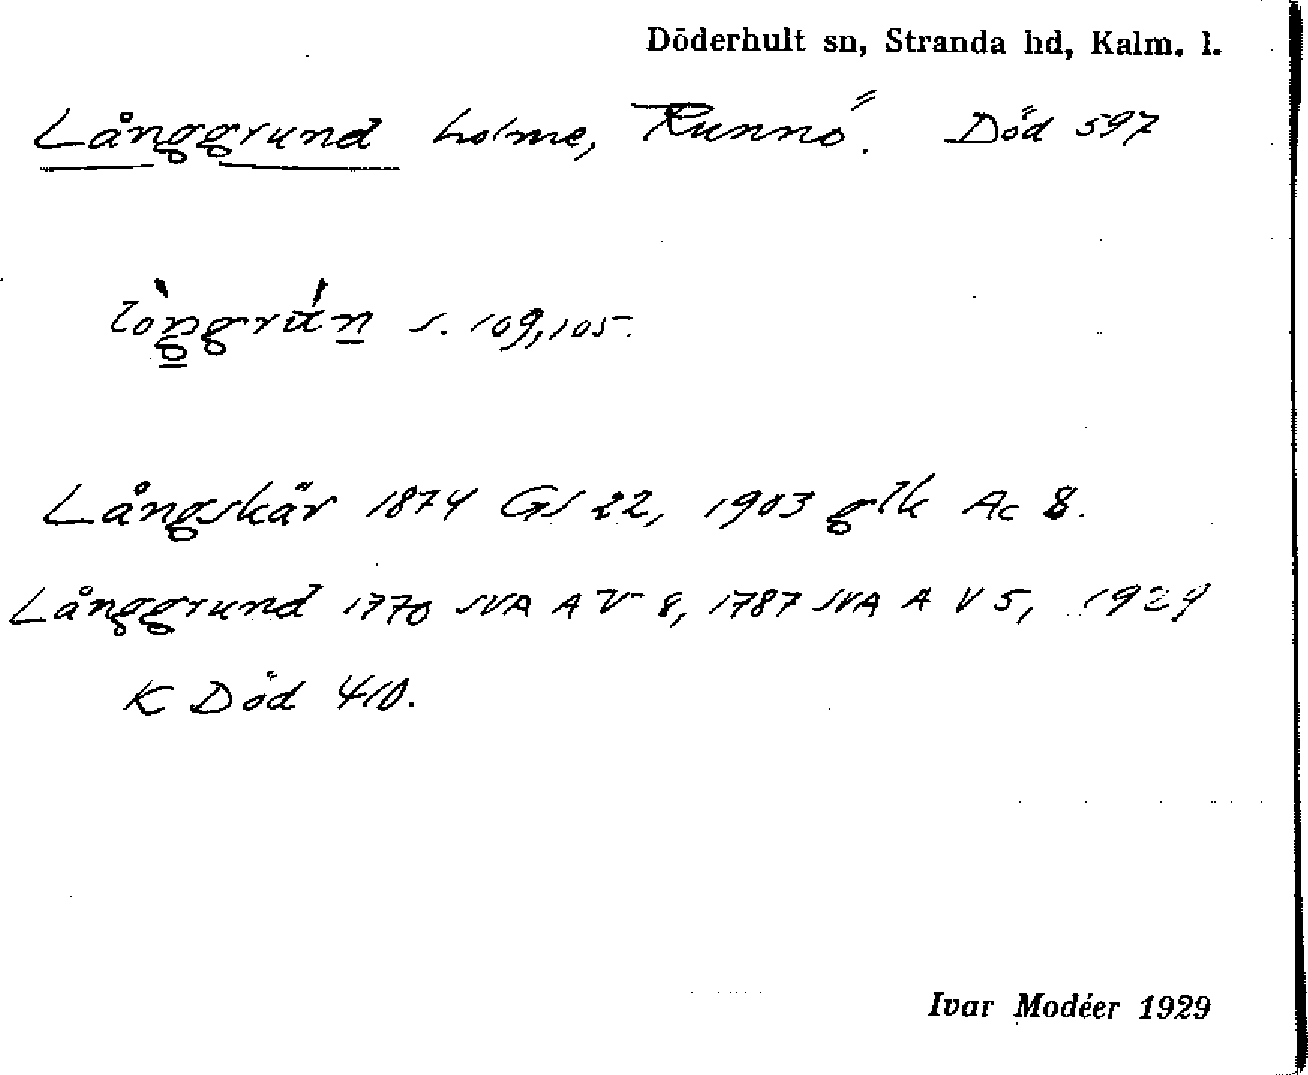 Döderhult sn, Stranda hd, Kalm. l.
Långgrund holme, Runnö. Död 597
s. 109, 105.
Långskär 1874 GS 22, 1903 glk Ac 8.
Långgrund 1770 SVA A V 8, 1787 SVA A V 5, 1929
K Död 410.
Ivar Modéer 1929